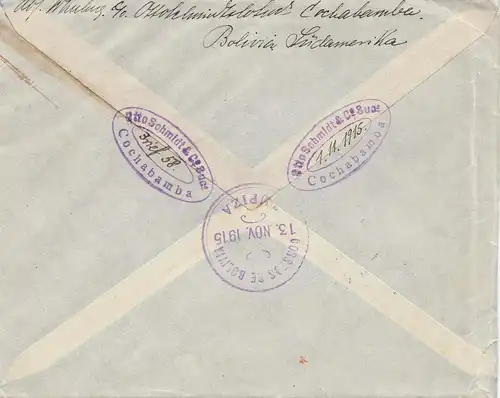 c/o Otto Schmidt Cochabamba.
Bolivia Südamerika
Otto Schmidt & Co Suc.
Brief 58.
Cochabamba
Otto Schmidt & Co Suc.
1.11.1915.
Cochabamba
CORREOS DE BOLIVIA
13. NOV. 1915
TUPIZA